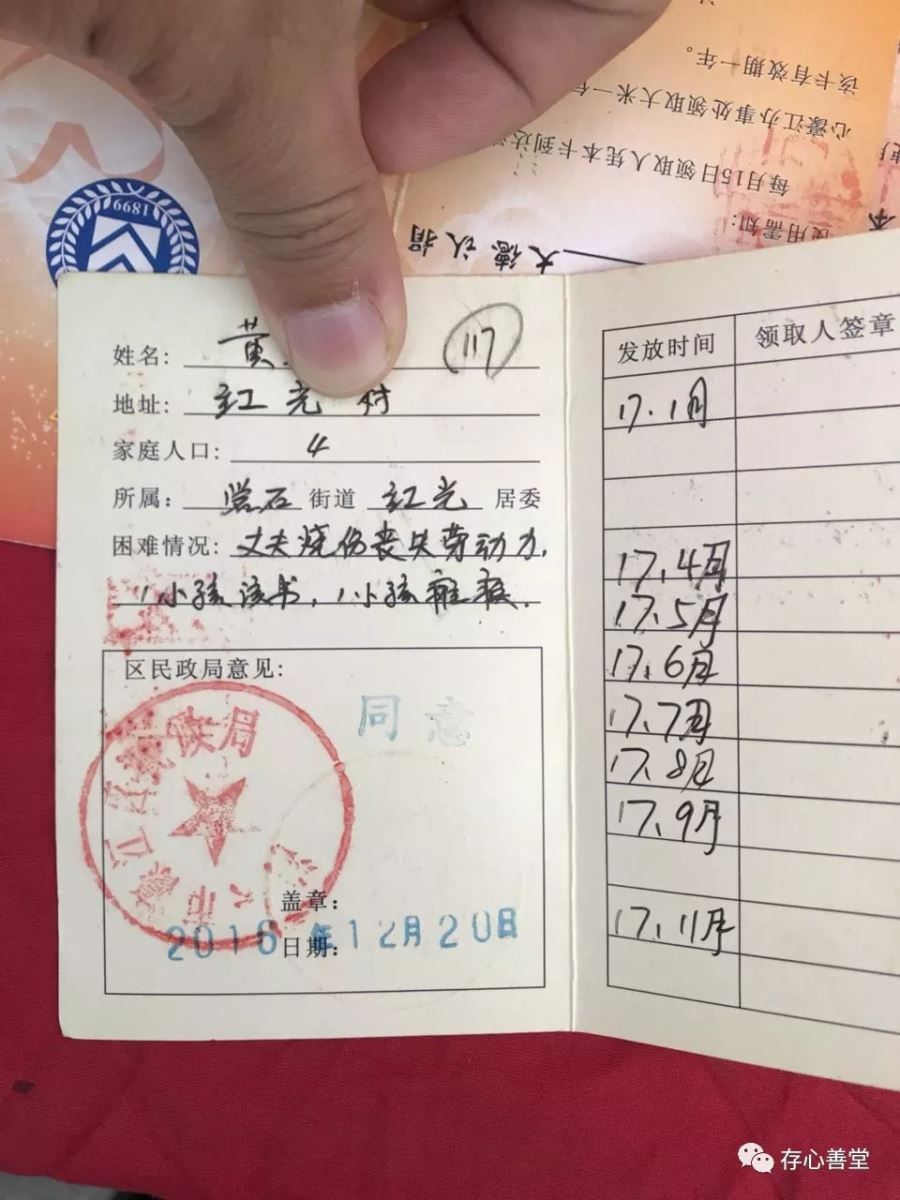 该卡有效期一年。
心濠江办事处领取大米一
每月15日领取人凭本卡到达
使用需知:
本
大德认捐
1899
姓名: 黄 117
地址: 红光村
家庭人口: 4
所属: 礐石 街道 红光 居委
困难情况: 丈夫烧伤丧失劳动力,
1小孩读书,1小孩瘫痪.
区民政局意见:
同意
盖章:
2016年12月20日
日期:
发放时间 领取人签章
17.1月
17.4月
17.5月
17.6月
17.7月
17.8月
17.9月
17.11月
存心善堂